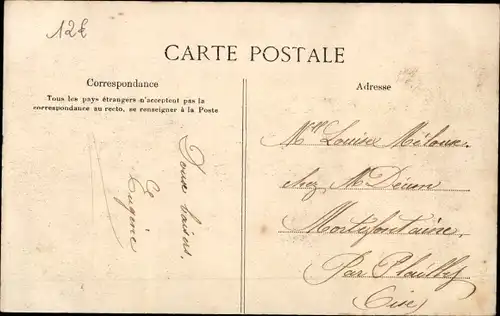 12€
CARTE POSTALE
Correspondance
Tous les pays étrangers n'acceptent pas la
correspondance au recto, se renseigner à la Poste
Doux baisers.
Eugène
Adresse
Mlle Louise Méloux
chez M
Mortefontaine
Par Plailly
Oise